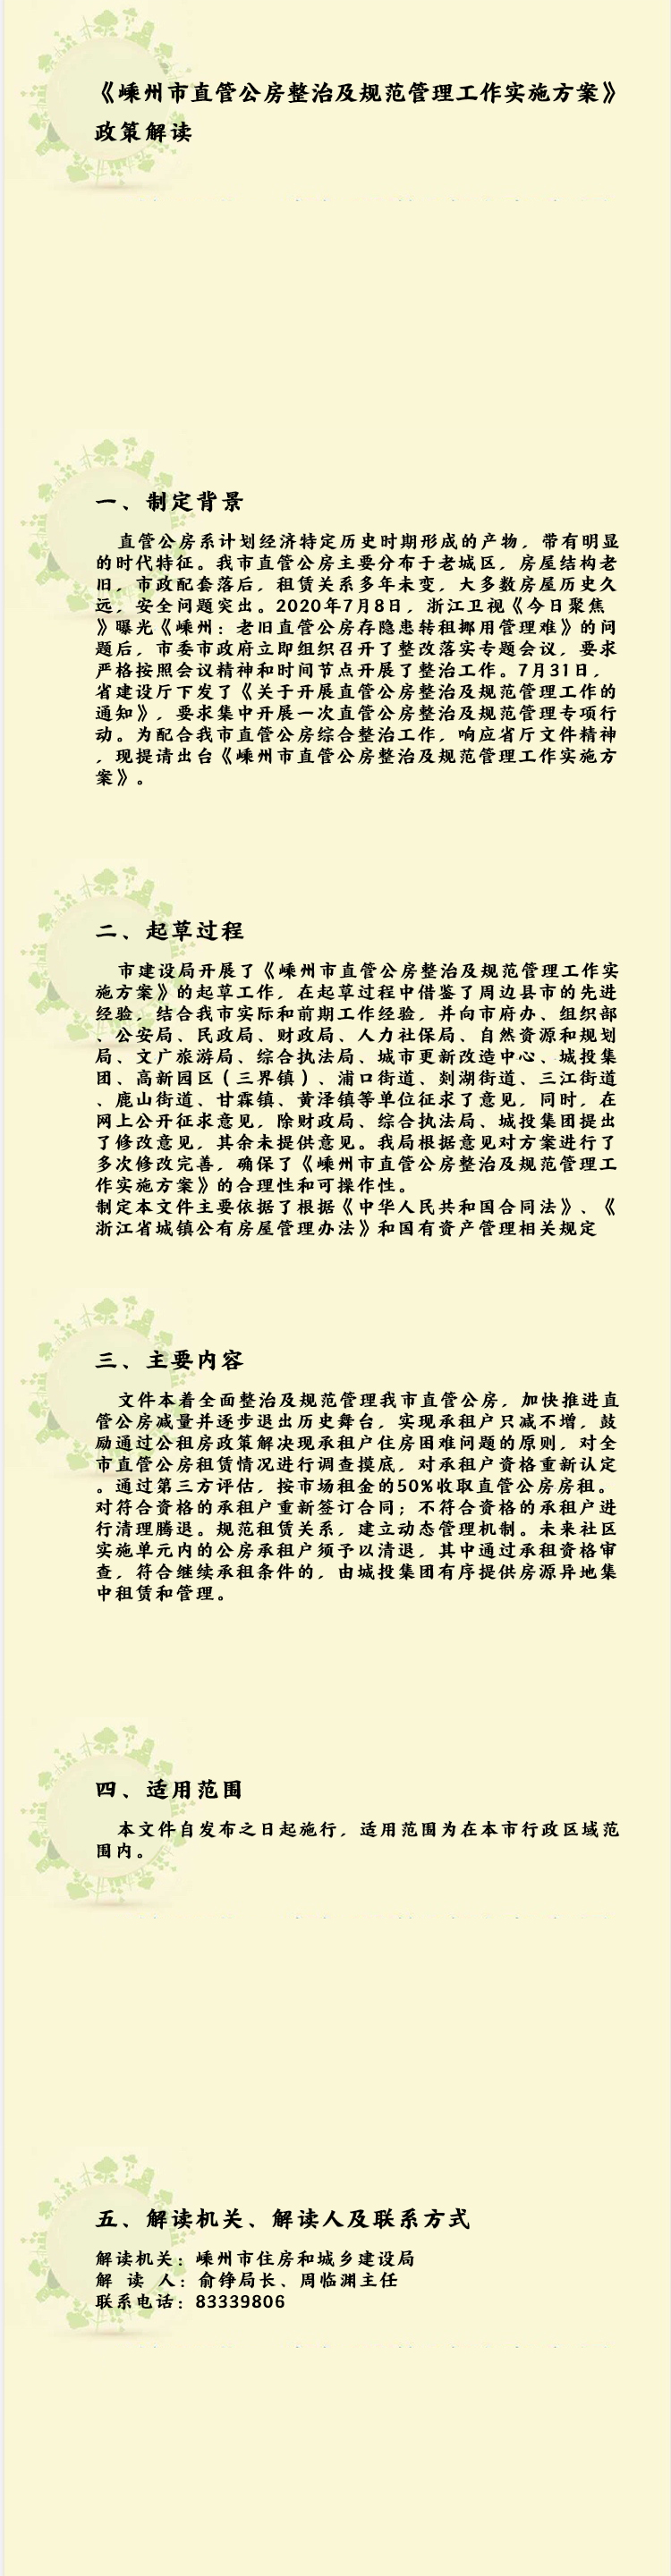 《嵊州市直管公房整治及规范管理工作实施方案》
政策解读
一、制定背景
直管公房系计划经济特定历史时期形成的产物，带有明显
的时代特征。我市直管公房主要分布于老城区，房屋结构老
旧，市政配套落后，租赁关系多年未变，大多数房屋历史久
远，安全问题突出。2020年7月8日，浙江卫视《今日聚焦
》曝光《嵊州：老旧直管公房存隐患转租挪用管理难》的问
题后，市委市政府立即组织召开了整改落实专题会议，要求
严格按照会议精神和时间节点开展了整治工作。7月31日，
省建设厅下发了《关于开展直管公房整治及规范管理工作的
通知》，要求集中开展一次直管公房整治及规范管理专项行
动。为配合我市直管公房综合整治工作，响应省厅文件精神
，现提请出台《嵊州市直管公房整治及规范管理工作实施方
案》。
二、起草过程
市建设局开展了《嵊州市直管公房整治及规范管理工作实
施方案》的起草工作，在起草过程中借鉴了周边县市的先进
经验，结合我市实际和前期工作经验，并向市府办、组织部
、公安局、民政局、财政局、人力社保局、自然资源和规划
局、文广旅游局、综合执法局、城市更新改造中心、城投集
团、高新园区（三界镇）、浦口街道、剡湖街道、三江街道
、鹿山街道、甘霖镇、黄泽镇等单位征求了意见，同时，在
网上公开征求意见，除财政局、综合执法局、城投集团提出
了修改意见，其余未提供意见。我局根据意见对方案进行了
多次修改完善，确保了《嵊州市直管公房整治及规范管理工
作实施方案》的合理性和可操作性。
制定本文件主要依据了根据《中华人民共和国合同法》、《
浙江省城镇公有房屋管理办法》和国有资产管理相关规定
三、主要内容
文件本着全面整治及规范管理我市直管公房，加快推进直
管公房减量并逐步退出历史舞台，实现承租户只减不增，鼓
励通过公租房政策解决现承租户住房困难问题的原则，对全
市直管公房租赁情况进行调查摸底，对承租户资格重新认定
。通过第三方评估，按市场租金的50%收取直管公房房租。
对符合资格的承租户重新签订合同；不符合资格的承租户进
行清理腾退。规范租赁关系，建立动态管理机制。未来社区
实施单元内的公房承租户须予以清退，其中通过承租资格审
查，符合继续承租条件的，由城投集团有序提供房源异地集
中租赁和管理。
四、适用范围
本文件自发布之日起施行，适用范围为在本市行政区域范
围内。
五、解读机关、解读人及联系方式
解读机关：嵊州市住房和城乡建设局
解 读 人：俞铮局长、周临渊主任
联系电话：83339806